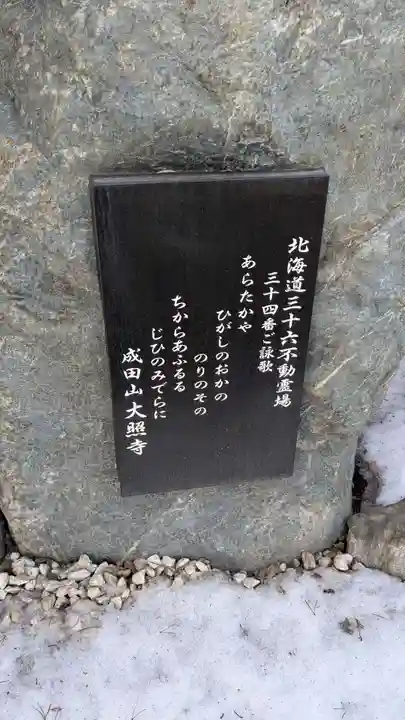 北海道三十六不動霊場
三十四番ご詠歌
あらたかや
ひがしのおかの
のりのその
ちからあふるる
じひのみてらに
成田山大照寺